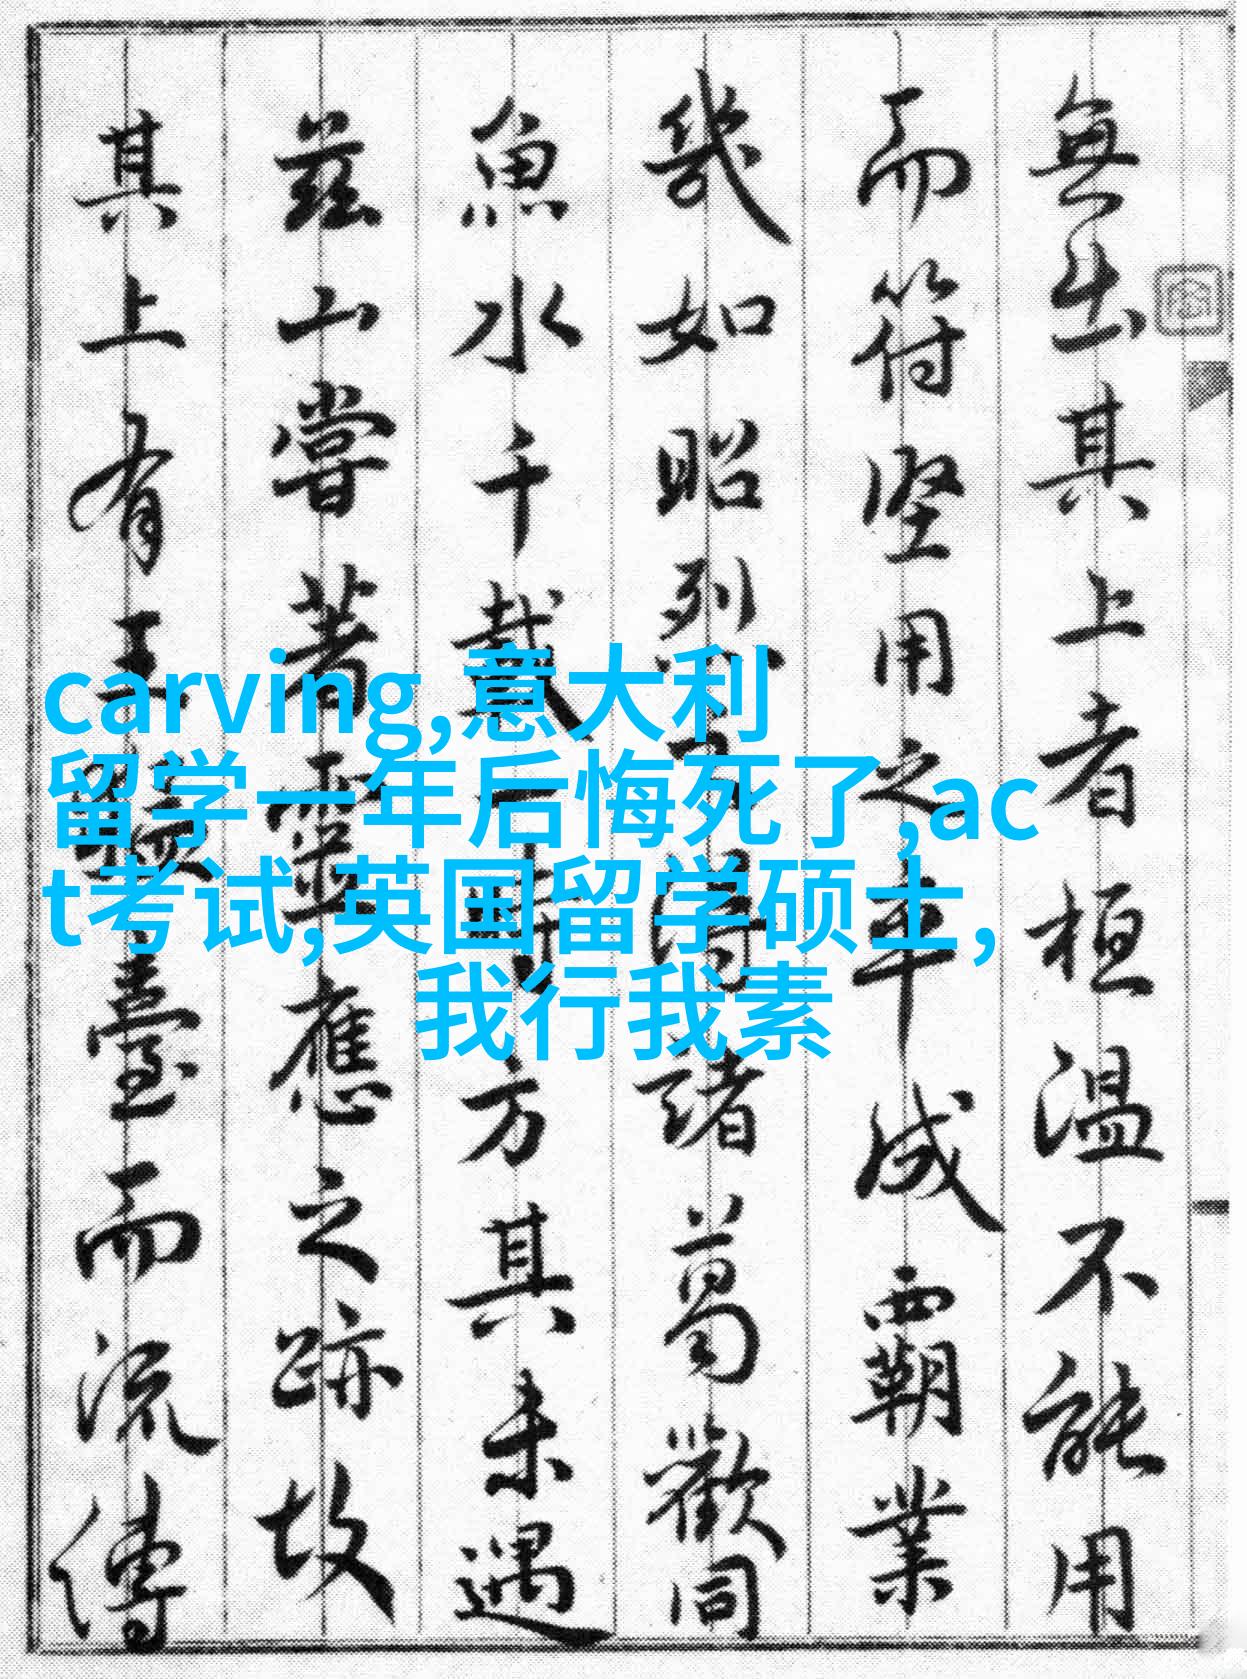 無出其上者桓溫不能用
而符堅用之卒成霸業
幾如昭烈之得諸葛歡同
魚水千載一時方其未遇
茲山嘗著靈應之跡故
其上有王猛臺而流傳
carving,意大利
留学一年后悔死了,ac
t考试,英国留学硕士,
我行我素